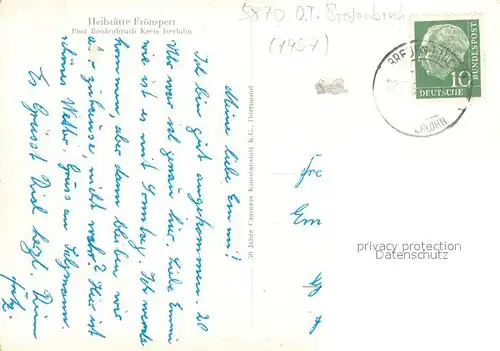 Heilstätte Frönspert
Post Bredenbruch Kreis Iserlohn
5870 O.T. Bredenbruch
(1957)
DEUTSCHE
BUNDESPOST
10
Meine liebe Emmi!
Ich bin gut angekommen. 20
Uhr war ich genau hier. Liebe Emmi
wie ist es mit Sonntag. Ich werde
kommen, aber dann bleiben wir
zuhause, nicht wahr? Hier ist
schönes Wetter. Gruss an
Es Grüsst Dich herzl. Dein
Fritz.
50 Jahre Cramers Kunstanstalt K.G., Dortmund
Fr
Em
privacy protection